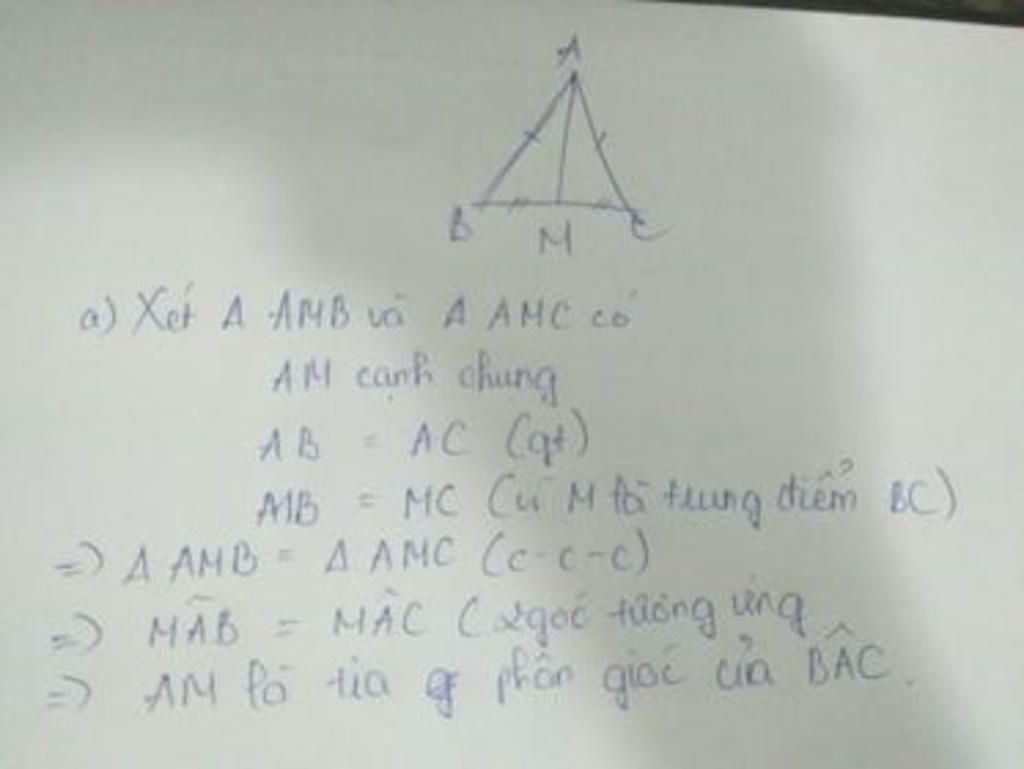 A
B M C
a) Xét Δ AMB và Δ AMC có
AM cạnh chung
AB = AC (gt)
MB = MC (vì M là trung điểm BC)
=> Δ AMB = Δ AMC (c-c-c)
=> MÂB = MÂC (2 góc tương ứng
=> AM là tia phân giác của BÂC.